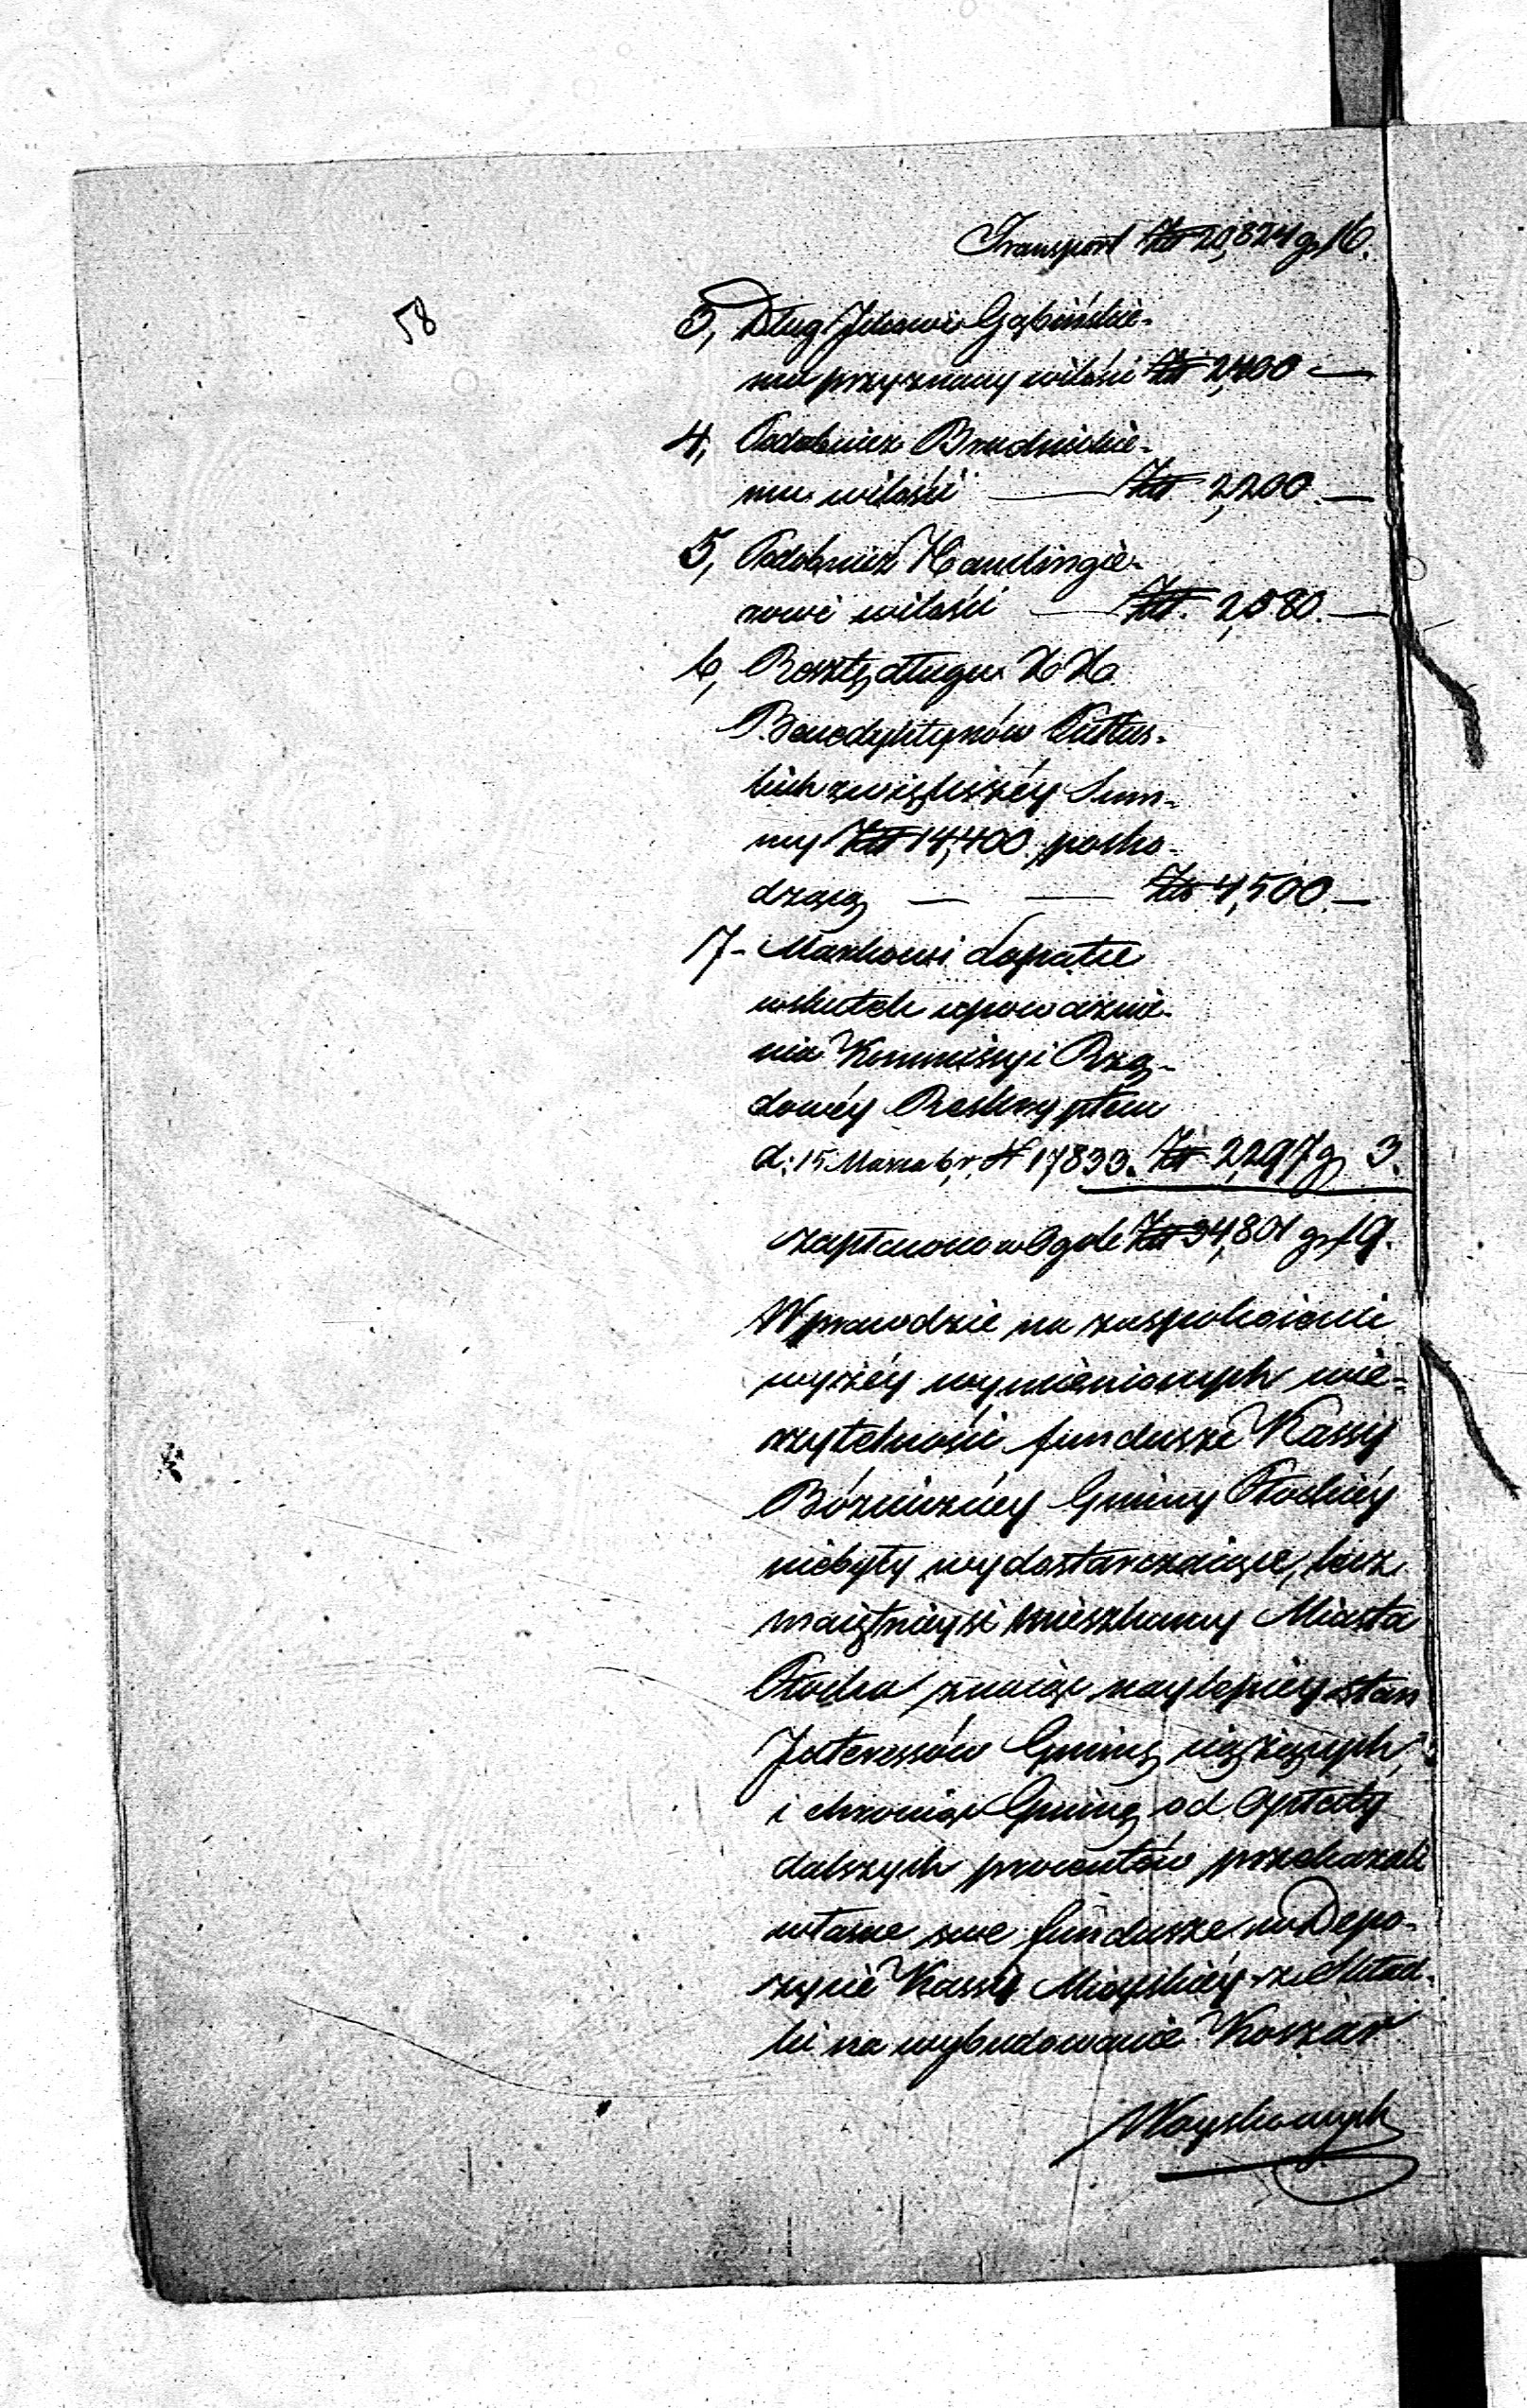 Transport Złt 20,824 gr 16.
58
3, Dług Jckowi Gąbińskie-
mu przyznany w ilości Złt 2,400 —
4, Podobnież Brudnickie-
mu w ilości — Złt 2,200. —
5, Podobnież Handlingie-
rowi w ilości — Złt. 2,580. —
6, Resztę długu XX
Benedyktynów Pułtus-
kich z większéy Sum-
my Złt 14,400 pocho-
dzącą — — Złt 4,500 —
7- Markowi Łopatce
wskutek upoważnie-
nia Kommissyi Rzą-
dowéy Reskryptem
d: 15 Marca b, r, N 17,833. Złt 2,297 gr 3.
zapłacono w Ogole Złt 34,801 gr 19.
Wprawdzie na zaspokoienie
wyżéy wymienionych wie-
rzytelności fundusze Kassy
Bóżniczéy Gminy Płockiéy
niebyły wydostarczaiące, lecz
maiętnieysi mieszkańcy Miasta
Płocka znaiąc naylepiéy stan
Interessów Gminę ciążących,
i chroniąc Gminę od Opłaty
dalszych procentów przekazali
własne swe fundusze w Depo-
zycie Kassy Mieyskiéy ze Skład-
ki na wybudowanie Koszar
Woyskowych